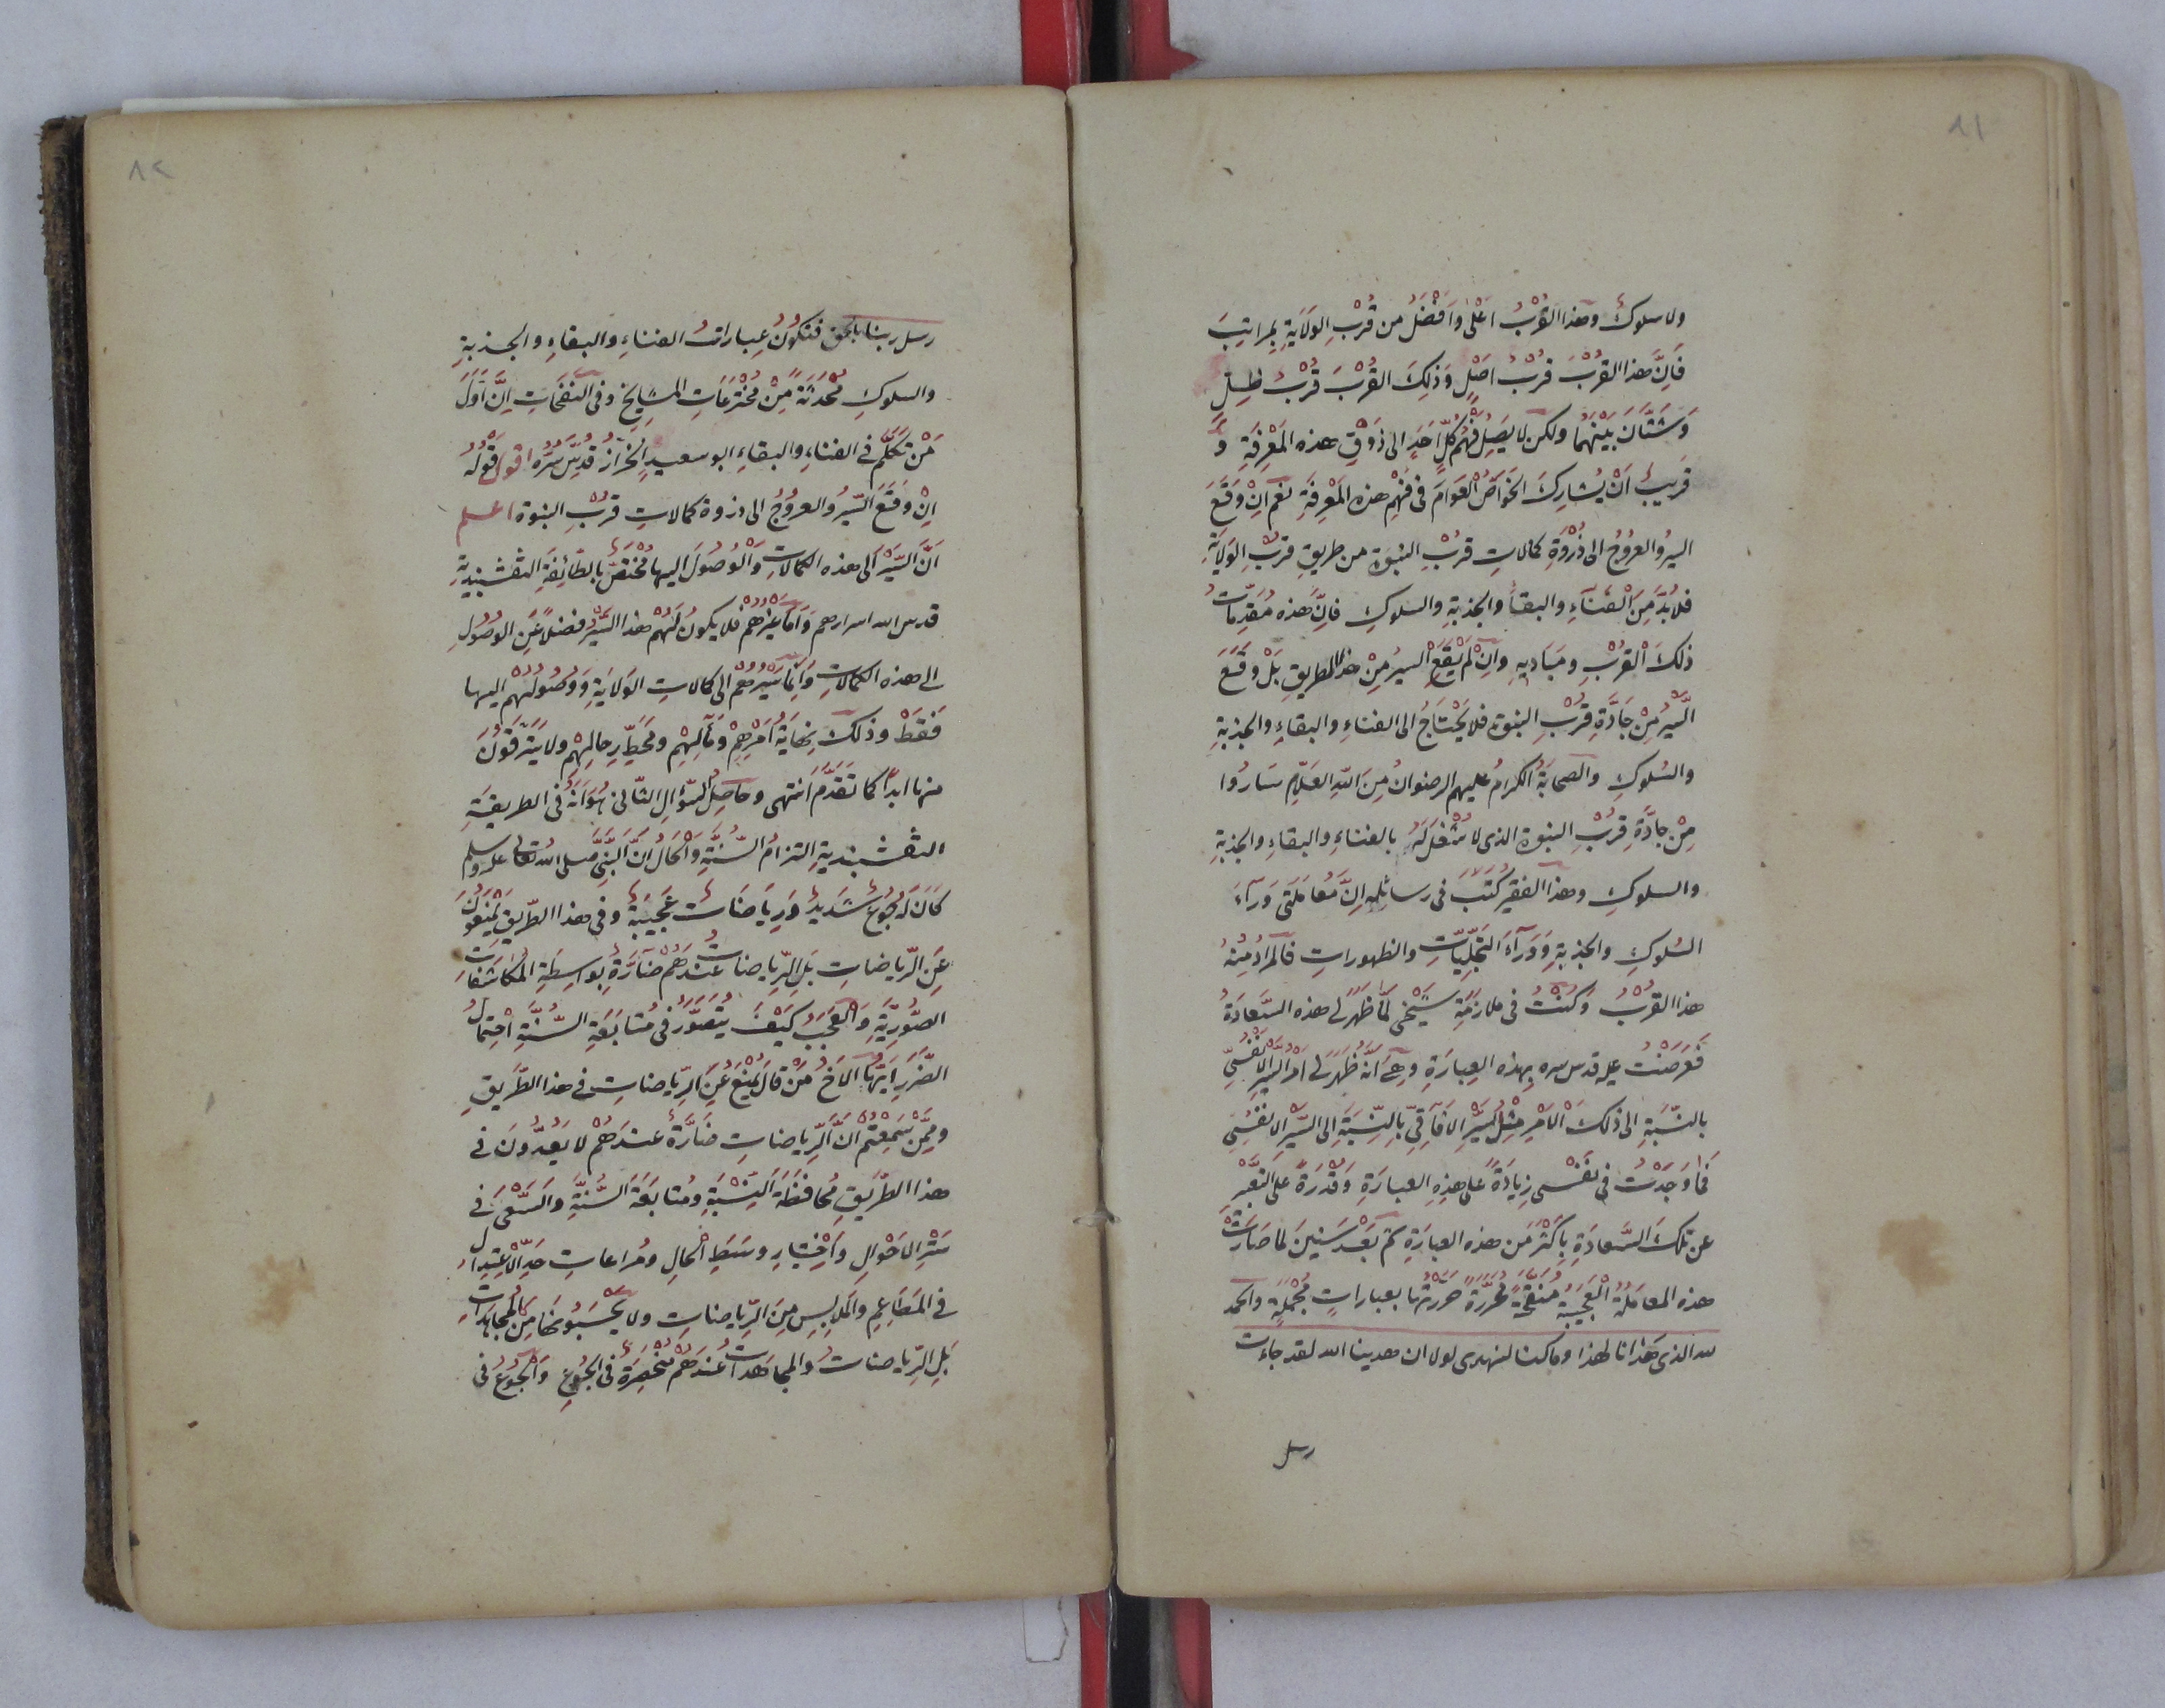 ٨١
ولا سلوك وهذا القُرْبُ اَعْلىٰ وَاَفْضَلُ من قُرْبِ الوَلَايَةِ بمراتِبَ
فَاِنَّ هذا القربَ قُرْبُ اَصْلٍ وَذلِكَ القُرْبَ قُرْبُ ظِلٍّ
وَشَتَّانَ بَيْنَهُمَا ولكن لا يَصِلُ فَهْمُ كُلِّ اَحَدٍ الى ذَوْقِ هذه المَعْرِفَةِ وَ
قَرِيبٌ اَنْ يُشارِكَ الخَوَاصُّ العَوَامَ فى فَهْمِ هذه المَعْرِفَةِ نعم اِنْ وَقَعَ
السيرُ والعروُجُ الى ذُرْوَةِ كمالاتِ قربِ النبوَّة من طريقِ قُرْبِ الوَلَايَةِ
فلا بُدَّ مِنَ الْفَنآءِ والبقآءِ والجذبةِ والسلوكِ فاِنَّ هذه مُقدِّماتُ
ذلكَ الْقُرْبِ ومَبَاديهِ وَاِنْ لَمْ يَقَعِ السيرُ مِنْ هذا الطريقِ بَلْ وقَعَ
السَّيْرُ مِنْ جَادَّةِ قُرْبِ النبوة فلا يَحْتَاجُ الى الفناءِ والبقاءِ والجذبةِ
والسُلوكِ والصحابَةُ الكرامُ عليهم الرضوانُ مِنَ اللهِ العَلَّامِ سَارُوا
مِنْ جادَّةِ قُرْبِ النبوة الذى لا شُغْلَ لَهُ بالفناءِ والبقاءِ والجذبةِ
والسلوكِ وهذا الفقير كَتَبَ فى رسائله اِنَّ مُعَامَلَتى وَرَآءَ
السُلوكِ والجذبةِ وَوَرَآءَ التَجَلِّيَاتِ والظهوراتِ فالمرادُ مِنْهُ
هذا القُرْبُ وَكُنْتُ فى ملازمَةِ شَيْخى لَمَّا ظَهَرَ لى هذه السَّعَادَةُ
فَعَرَضْتُ عليه قدس سره بهذه العِبَارَةِ وهِىَ اَنَّهُ ظَهَرَ لى اَمْرُ السَّيْرِ الاَنْفُسِىِّ
بالنسْبَةِ الى ذلكَ الْاَمْرِ مِثْلُ السَّيْرِ الافَاقِىِّ بِالنِّسْبَةِ اِلى السَّيْرِ الاَنْفُسِىِّ
فَمَا وَجَدْتُ فى نَفْسى زِيَادَةً عَلى هذِهِ العِبَارَةِ وَقُدْرَةً على التَعْبِيْرِ
عن تلكَ السَّعادَةِ بِاَكْثَرَ من هذه العبارَةِ ثم بَعْدَ سَنينَ لَمَّا صَارَتْ
هذه المعامَلَةُ الْعَجيبَةُ مُنَقَّحَةً مُحَرَّرَةً حَرَّرْتُها بعباراتٍ مُجْمَلَةٍ والحمد
لله الذى هَدٰانا لهذا وما كنا لنهتدى لولا ان هدينا الله لقد جاءت
رسل
٨٢
رسل ربنا بالحق فتكُونُ عِباراتُ الفناءِ والبقاءِ والجذبةِ
والسلوكِ مُحْدَثَةً مِنْ مُخْتَرَعَاتِ المشايخِ وفى النفَحَاتِ اِنَّ اَوَّلَ
مَنْ تَكَلَّمَ فى الفناءِ والبقاءِ ابو سعيدٍ الخرَّازُ قُدِّسَ سِرُّه اقول قَوْلُهُ
اِنْ وَقَعَ السَّيْرُ والعروُجُ الى ذروة كمالاتِ قُربِ النبوة اعلم
اَنَّ السَّيْرَ اَلى هذه الكمالاتِ وَالْوُصُولَ اليها مُخْتَصٌّ بالطَائِفَةِ النقشبنديةِ
قدس الله اسرارهم وَاَمَّا غَيْرُهُمْ فلا يكونُ لَهُمْ هذا السَّيْرُ فضلًا عَنِ الوُصُولِ
الى هذه الكمالاتِ وَاِنَّمَا سَيْرُهُمْ الى كمالاتِ الوَلَايَةِ وَوصُولُهُم اليها
فَقَطْ وذلكَ نِهَايَةُ اَمْرِهِمْ وَمَآلِهِمْ ومَحَطِّ رِحالِهِمْ ولا يَتَرَقَّوْنَ
منها ابداً كما تَقَدَّمَ انتهى وحاصِلُ السّؤالِ الثّانى هُوَ اَنَّهُ فى الطريقةِ
النقشبنديةِ التزامُ السُّنَّةِ وَالْحَالُ اَنَّ النَّبِىَّ صلى الله تعالى عليه وسلم
كَانَ لَهُ جُوعٌ شَديدٌ وَرِيَاضَاتٌ عَجيبَةٌ وفى هذا الطَّريقِ يَمْنَعُونَ
عَنِ الرِّياضاتِ بَلِ الرِّياضاتُ عِنْدَهُمْ ضآرَّةٌ بواسِطَةِ المكَاشَفَاتِ
الصُّورِيَّةِ وَالْعَجَبُ كَيْفَ يُتَصَوَّرُ فى مُتابَعَةِ السُّنَّةِ اِحْتِمَالُ
الضَّرَرِ اَيُّهَا الاَخُ مَنْ قالَ يُمْنَعُ عَنِ الرِّياضاتِ فى هذا الطَّريقِ
ومِمَّنْ سَمِعْتُمْ اَنَّ الرِّياضاتِ ضَارَّةٌ عندَهُمْ لا يَعُدُّونَ فى
هذا الطَّريقِ مُحَافَظَةَ النِّسْبَةِ ومُتابَعَةَ السُّنَّةِ والسَّعْىَ فى
سَتْرِ الاَحْوالِ وَاِخْتِيَارِ وسَطِ الْحالِ ومُراعاتِ حَدِّ الْاِعْتِدالِ
فى المَطَاعِمِ والمَلابِسِ مِنَ الرِّياضاتِ ولا يَحْسَبُونَهَا مِنَ المُجَاهَدَاتِ
بَلِ الرِّياضاتُ والمجاهَداتُ عندَهُمْ مُنْحَصِرَةٌ فى الجُوعِ وَالْجُوعُ فى